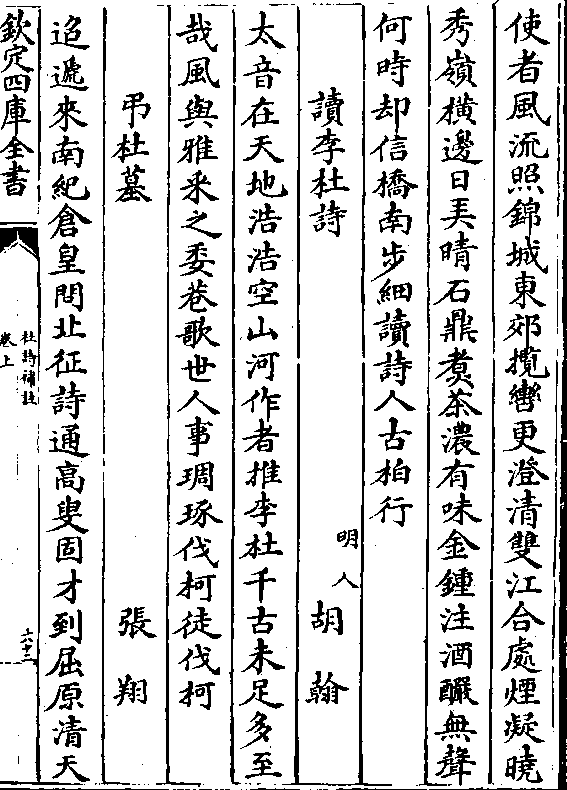 使者風流照錦城東郊攬轡更澄清雙江合處煙凝曉
秀嶺橫邊日美晴石鼎煑茶濃有味金鍾注酒釅無聲
何時却信橋南步細讀詩人古柏行
讀李杜詩
明人 胡翰
太音在天地浩浩空山河作者推李杜千古未足多至
哉風與雅采之委巷歌世人事琱琢伐柯徒伐柯
弔杜墓
張翔
迢遞來南紀倉皇問北征詩通高叟固才到屈原清天
欽定四庫全書
杜詩補註
卷上
六十二